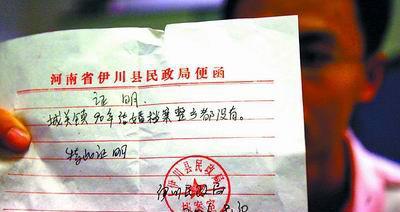 河南省伊川县民政局便函
证明
城关镇90年结婚档案整乡都没有。
特此证明
伊川县民政局
档案室
伊川民政局